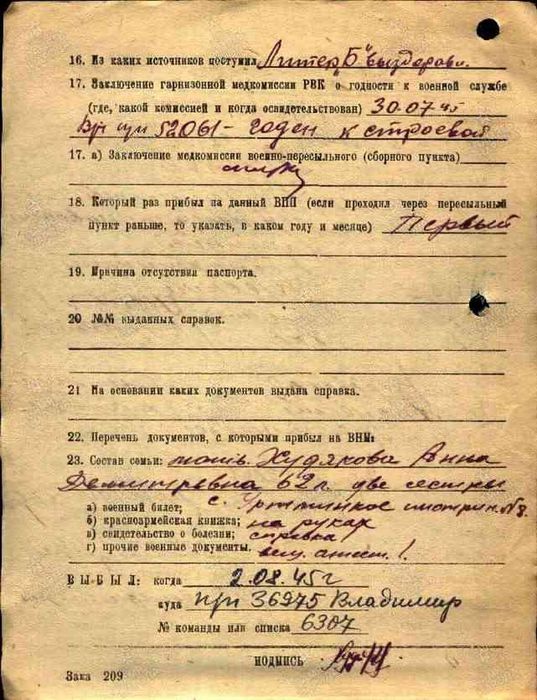 16. Из каких источников поступил Литер „Б“ выздоров.
17. Заключение гарнизонной медкомиссии РВК о годности к военной службе
(где, какой комиссией и когда освидетельствован) 30.07.45
при 52061 – годен к строевой
17. а) Заключение медкомиссии военно-пересыльного (сборного пункта)
18. Который раз прибыл на данный ВПП (если проходил через пересыльный
пункт раньше, то указать, в каком году и месяце) Первый
19. Причина отсутствия паспорта.
20 №№ выданных справок.
21 На основании каких документов выдана справка.
22. Перечень документов, с которыми прибыл на ВПП:
23. Состав семьи: мать Худякова Анна
Дмитревна 62 г. две сестры
а) военный билет; с.
б) красноармейская книжка; на руках
в) свидетельство о болезни; справка
г) прочие военные документы. вещ. аттест. 1.
ВЫБЫЛ: когда 2.08.45г
куда при 36975 Владимир
№ команды или списка 6307
ПОДПИСЬ
Зака 209